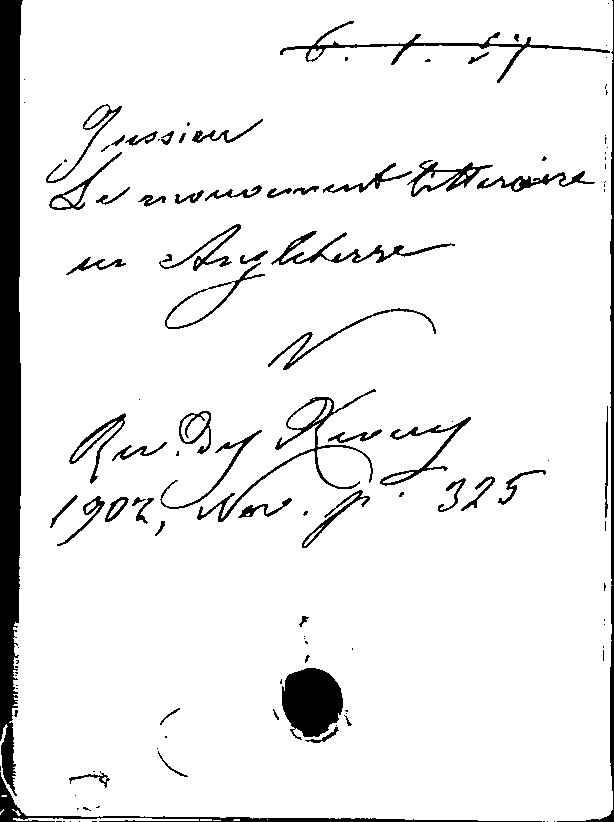 6. 1. 57
Jussieu
Le mouvement littéraire
en Angleterre
V
Rev. Du
1902, Nov. p. 325